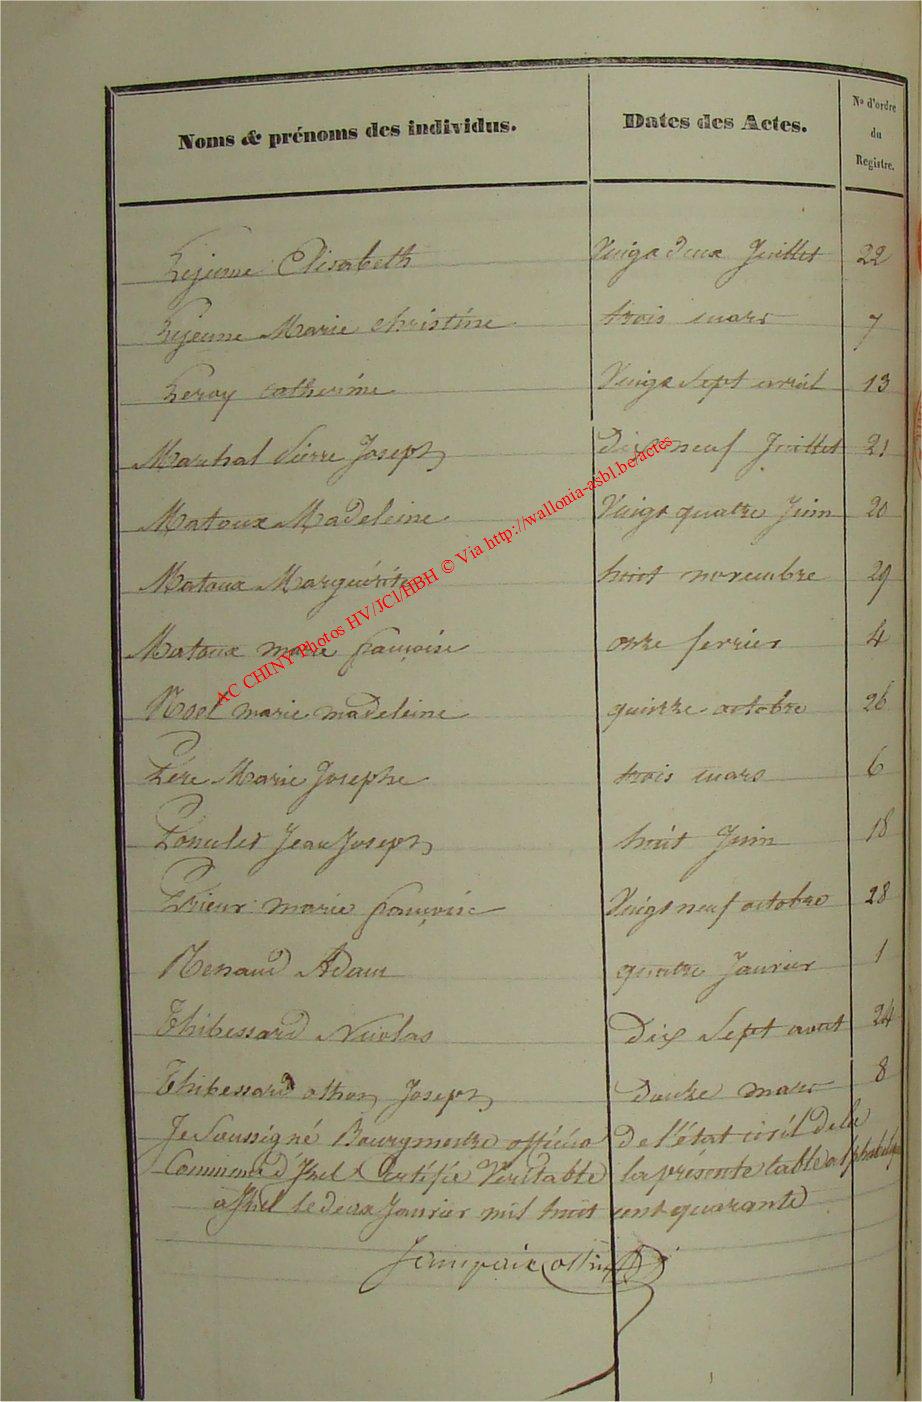 Noms & prénoms des individus. Dates des Actes. No d'ordre du Registre.
Lejeune Elisabeth Vingt deux Juillet 22
Lejeune Marie christine trois mars 7
Leroy catherine Vingt Sept avril 13
Marchal Pierre Joseph Dix neuf Juillet 21
Matoux Madeleine Vingt quatre Juin 20
Matoux Marguérite huit novembre 29
Matoux marie françoise onze fevrier 4
Noel marie madeleine quinze octobre 26
Père Marie Josephe trois mars 6
Poncelet Jean Joseph huit Juin 18
Prieur marie françoise Vingt neuf octobre 28
Renaud Adam quatre Janvier 1
Thibessard Nicolas Dix Sept aout 24
Thibessard Joseph douze mars 8
Je Soussigné Bourgmestre officier de l'état civil de la
Commune d'Izel Certifie Véritable la présente table alphabétique
a Izel le deux Janvier mil huit cent quarante
AC CHINY Photos HV/JCl/HBH © Via http://wallonia-asbl.be/actes